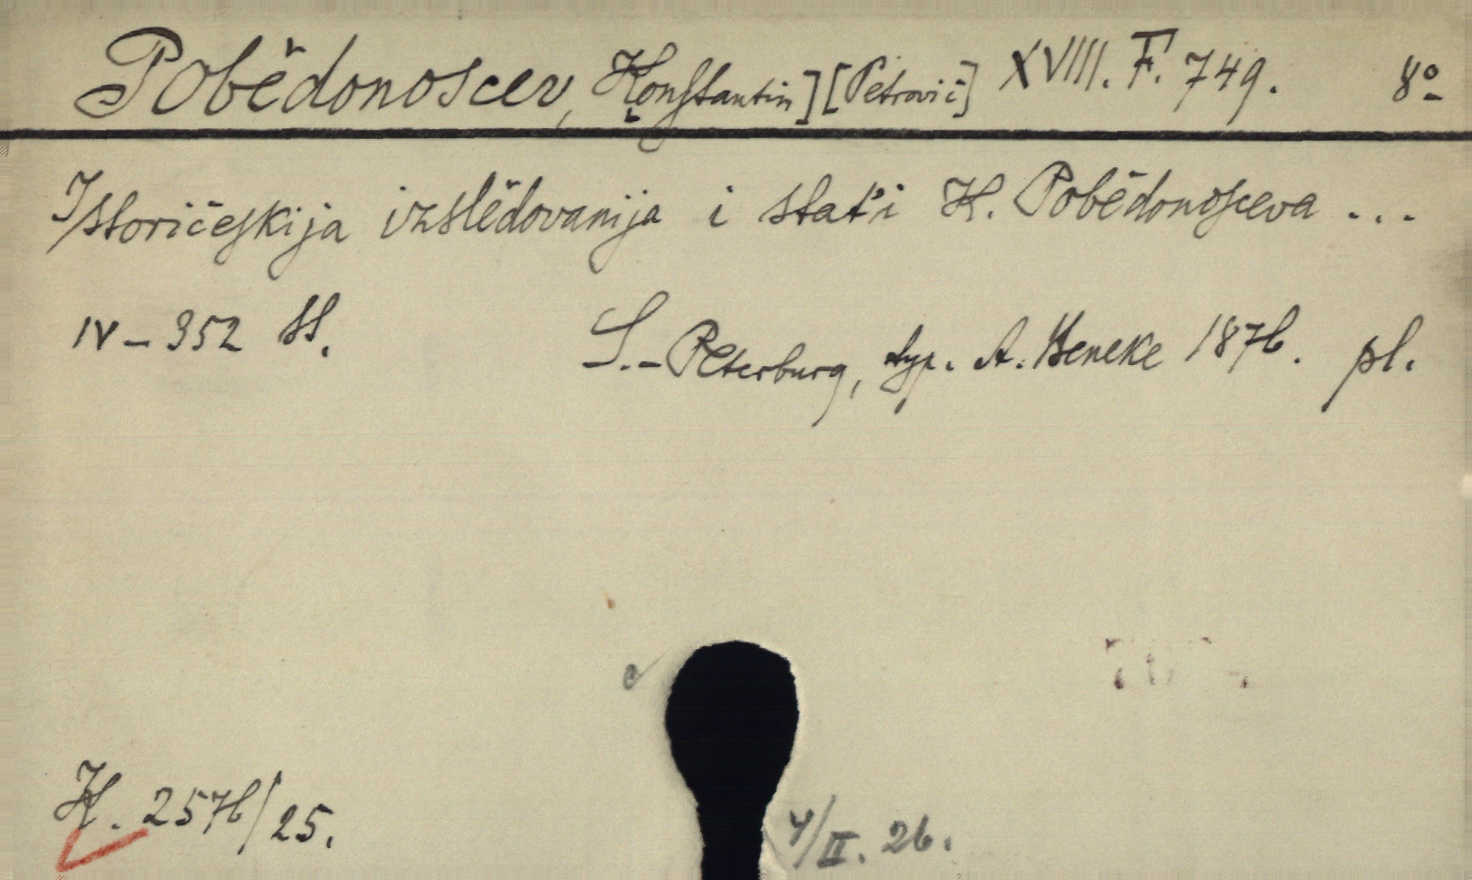 Pobědonoscev, Konstantin] [Petrovič] XVIII. F. 749. 8º
Istoričeskija izslědovanija i stat'i K. Pobědonosceva ...
IV – 352 SS.
S.-Peterburg, typ. A. Beneke 1876. pl.
K. 2576/25.
4/II. 26.